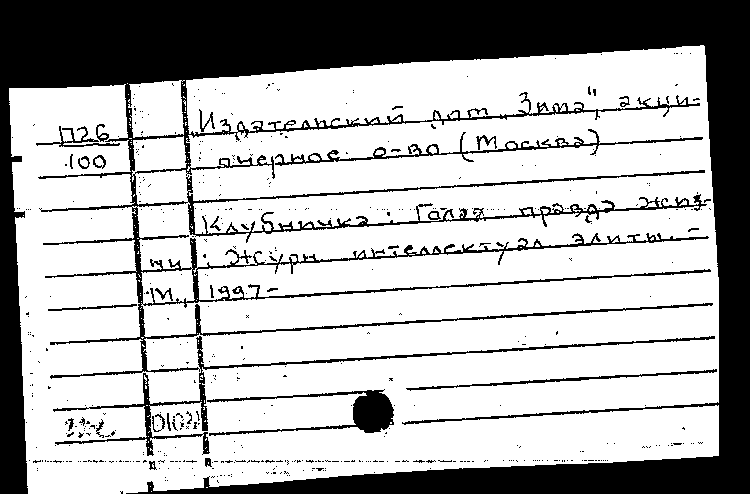 П26
100
„Издательский дом „Зима“, акци-
онерное о-во (Москва)
Клубничка : Голая правда жиз-
ни : Журн. интеллектуал. элиты. –
М., 1997–